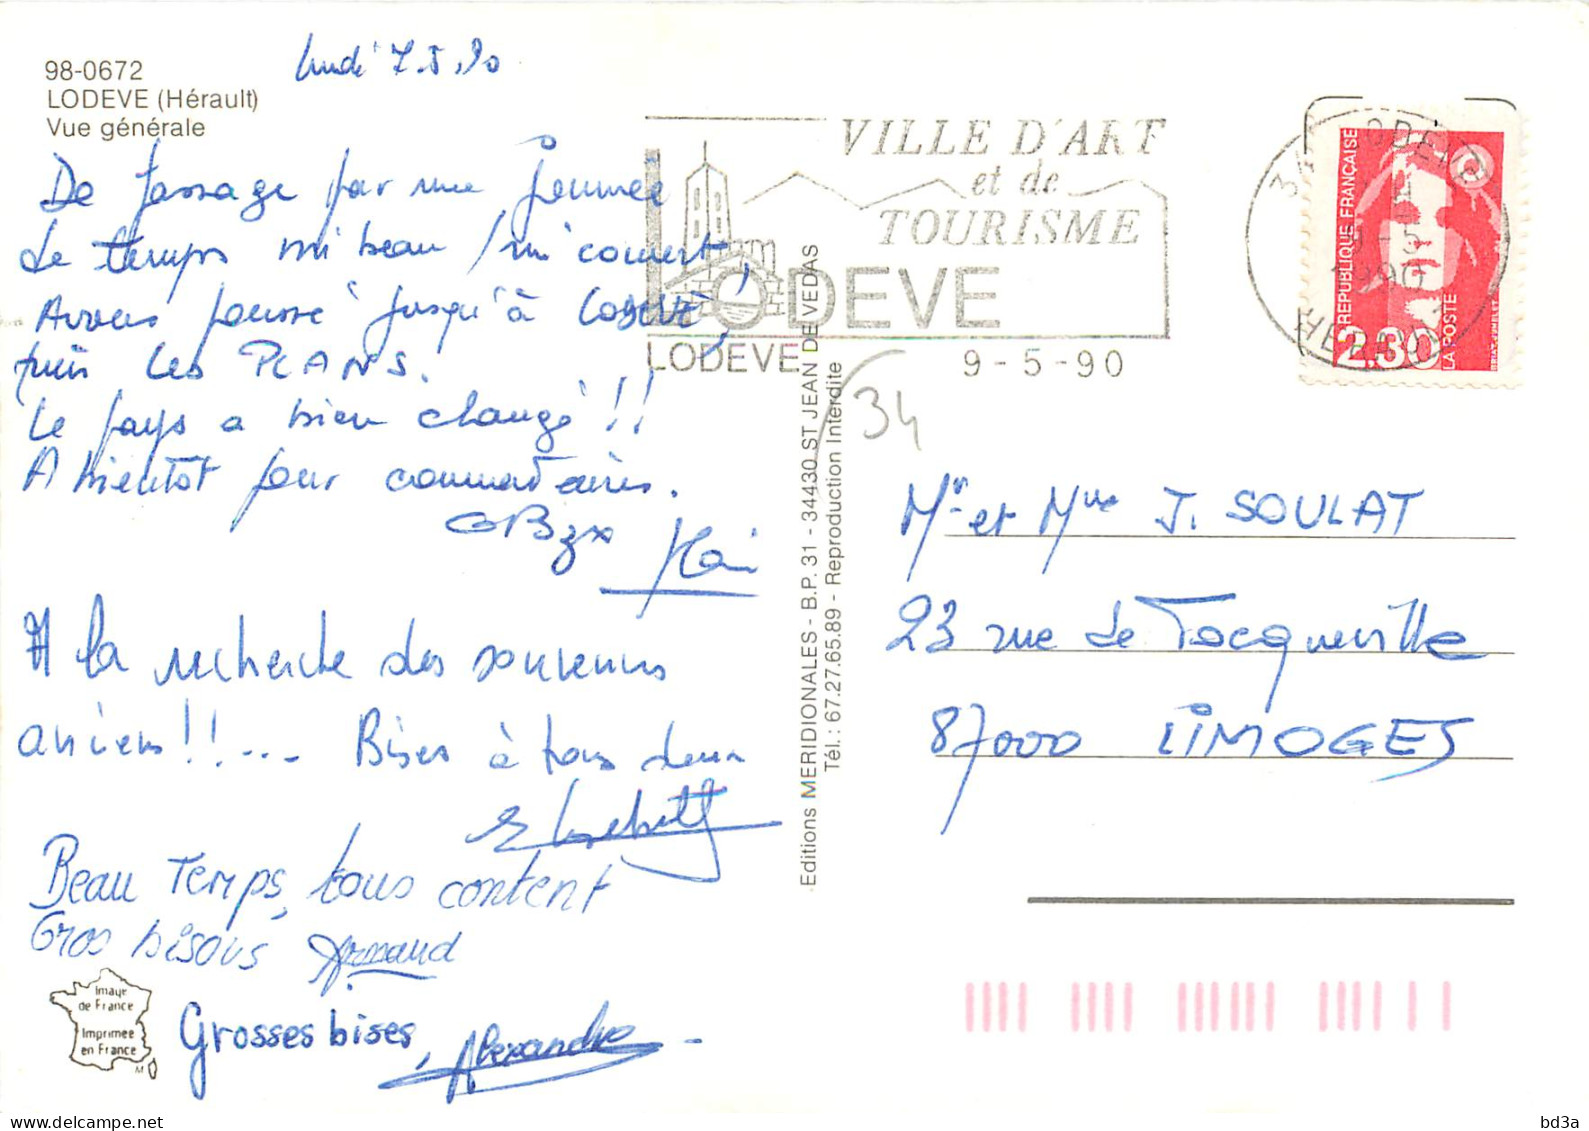 lundi 7.5.90
98-0672
LODEVE (Hérault)
Vue générale
De passage par une journée
Le temps mi beau / mi couvert,
Avons poussé jusqu'à LODEVE,
puis Les PLANS.
Le pays a bien changé !!
A bientôt pour commentaires.
GBzx
A la recherche des souvenirs
anciens !! ... Bises à tous deux
Beau Temps, tous content
Gros bisous Armand
Grosses bises, Alexandre
Image
de France
Imprimée
en France
Editions MERIDIONALES - B.P. 31 - 34430 ST JEAN DE VEDAS
Tél. : 67.27.65.89 - Reproduction Interdite
VILLE D'ART
et de
TOURISME
LODEVE
LODEVE 9-5-90
34 LODEVE
9-5
1990
HERAULT
REPUBLIQUE FRANÇAISE
2.30
LA POSTE
34
Mr et Mme J. SOULAT
23 rue de Tocqueville
87000 LIMOGES
bd3a